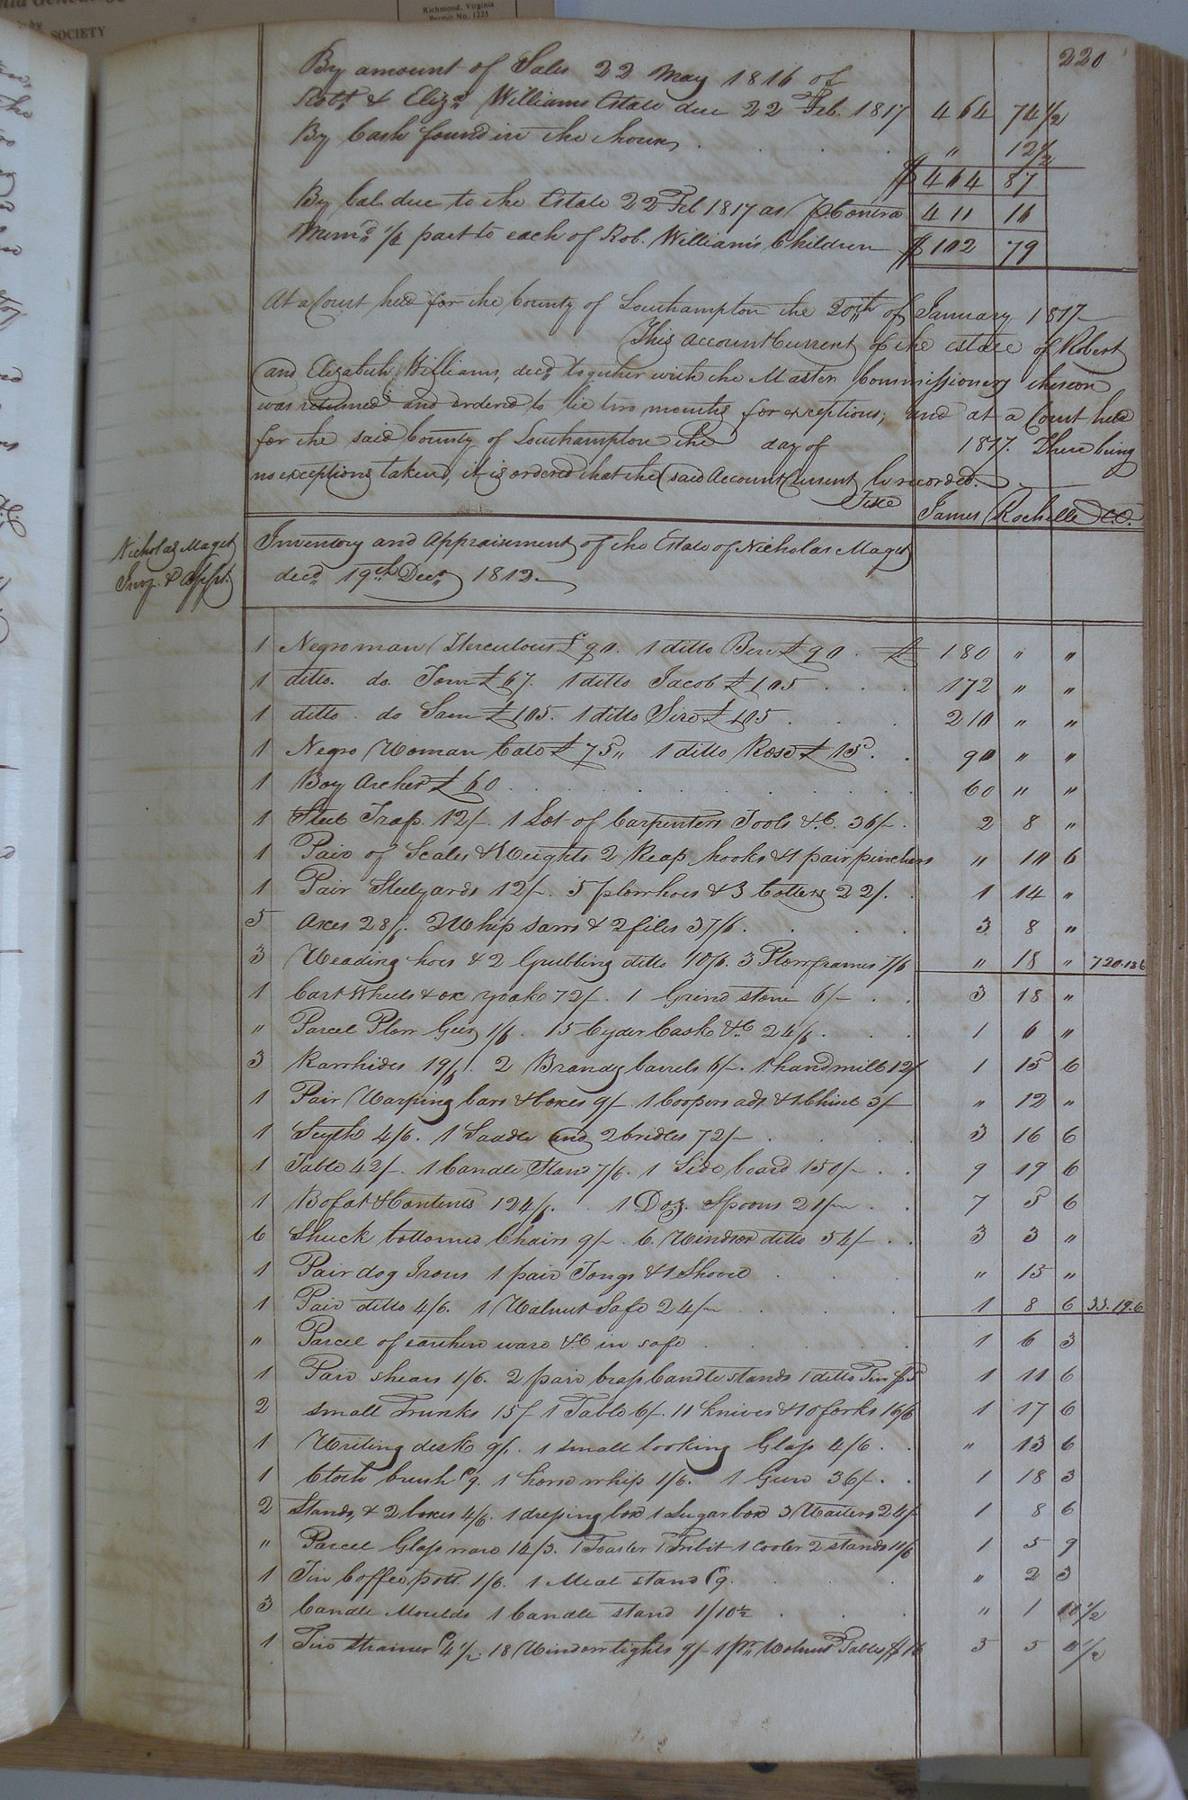 SOCIETY
Richmond, Virginia
Permit No. 1225
220
By amount of Sales 22 May 1816 of
Robt. & Eliza. Williams Estate due 22 Feb. 1817 464 74 1/2
By Cash found in the house . . . " 12 1/2
$ 464 87
By bal. due to the Estate 22 Feb 1817 as P Contra 411 16
Memo. 1/4 part to each of Rob. Williams Children $ 102 79
At a Court held for the County of Southampton the 20th of January 1817
This account Current of the estate of Robert
and Elizabeth Williams, decd. together with the Master Commissioners thereon
was returned and ordered to lie two months for exceptions; and at a Court held
for the said County of Southampton the day of 1817. There being
no exceptions taken, it is ordered that the said Account Current be recorded.
Teste James Rochelle CC.
Nicholas Maget
Invy. & Appt.
Inventory and Appraisement of the Estate of Nicholas Maget
decd. 19th Decr. 1812
1 Negro man Herculous £ 90. 1 ditto Ben £ 90 . £ 180 " "
1 ditto. do Tom £ 67. 1 ditto Jacob £ 105 . . . 172 " "
1 ditto. do Sam £ 105. 1 ditto Siro £ 105 . . . 210 " "
1 Negro Woman Cate £ 75 " 1 ditto Rose £ 15 . . 90 " "
1 Boy Archer £ 60 . . . 60 " "
1 Steel Trap 12/- 1 Lot of Carpenters Tools &C. 36/- . 2 8 "
1 Pair of Scales & Weights 2 Reap hooks & 1 pair pinchers " 10 6
1 Pair Steelyards 12/- 5 plow hoes & 3 Colters 22/. . 1 14 "
5 Axes 28/. 2 Whip saws & 2 files 37/6 . . . 3 8 "
3 Weading hoes & 2 Grubbing ditto 10/6. 3 Plow frames 7/6 " 18 " 720.13 6
1 Cart Wheels & ox yoake 72/- 1 Grind stone 6/- . . 3 18 "
" Parcel Plow Geer 1/6 . 15 Cyder Cask &C 24/6 . . . 1 6 "
3 Rawhides 19/6 . 2 Brandy barrels 6/- . 1 handmill 12/ 1 15 6
1 Pair Warping bars & boxes 9/- 1 Coopers adz & 1 Chisel 3/- " 12 "
1 Scyth 4/6. 1 Saddle and 2 bridles 72/- . . . 3 16 6
1 Table 42/- 1 Candle Stand 7/6. 1 Side board 150/- . . 9 19 6
1 Bofat & Contents 124/6. 1 Doz. Spoons 21/- . . 7 5 6
6 Shuck bottomed Chairs 9/- . 6 Windsor ditto 54/- . . 3 3 "
1 Pair dog Irons 1 pair Tongs & 1 Shovel . . . " 15 "
1 Pair ditto 4/6. 1 Walnut Safe 24/- . . . 1 8 6 33.19.6
" Parcel of earthen ware &C in safe . . . 1 6 3
1 Pair shears 1/6. 2 pair brass Candle stands 1 ditto Tin 1 11 6
2 small Trunks 15/ 1 Table 6/. 11 knives & 10 forks 16/6 1 17 6
1 Writing desk 9/. 1 small looking Glass 4/6 . . " 13 6
1 Cloth brush 9. 1 horse whip 1/6. 1 Gun 36/- . . 1 18 3
2 Stands & 2 boxes 4/6. 1 dressing box 1 Sugar box 3 Waiters 24/- 1 8 6
" Parcel Glass ware 14/3. 1 Toaster 1 Tribit 1 Cooler 2 stands 11/6 1 5 9
1 Tin Coffee pott 1/6. 1 Meal stand 9. . . . " 2 3
3 Candle Moulds 1 Candle stand 1/10 1/2 . . . " 1 10 1/2
1 Tin strainer 4 1/2. 18 Window lights 9/- 1 pr. Walnut Tables 5 5 4 1/2